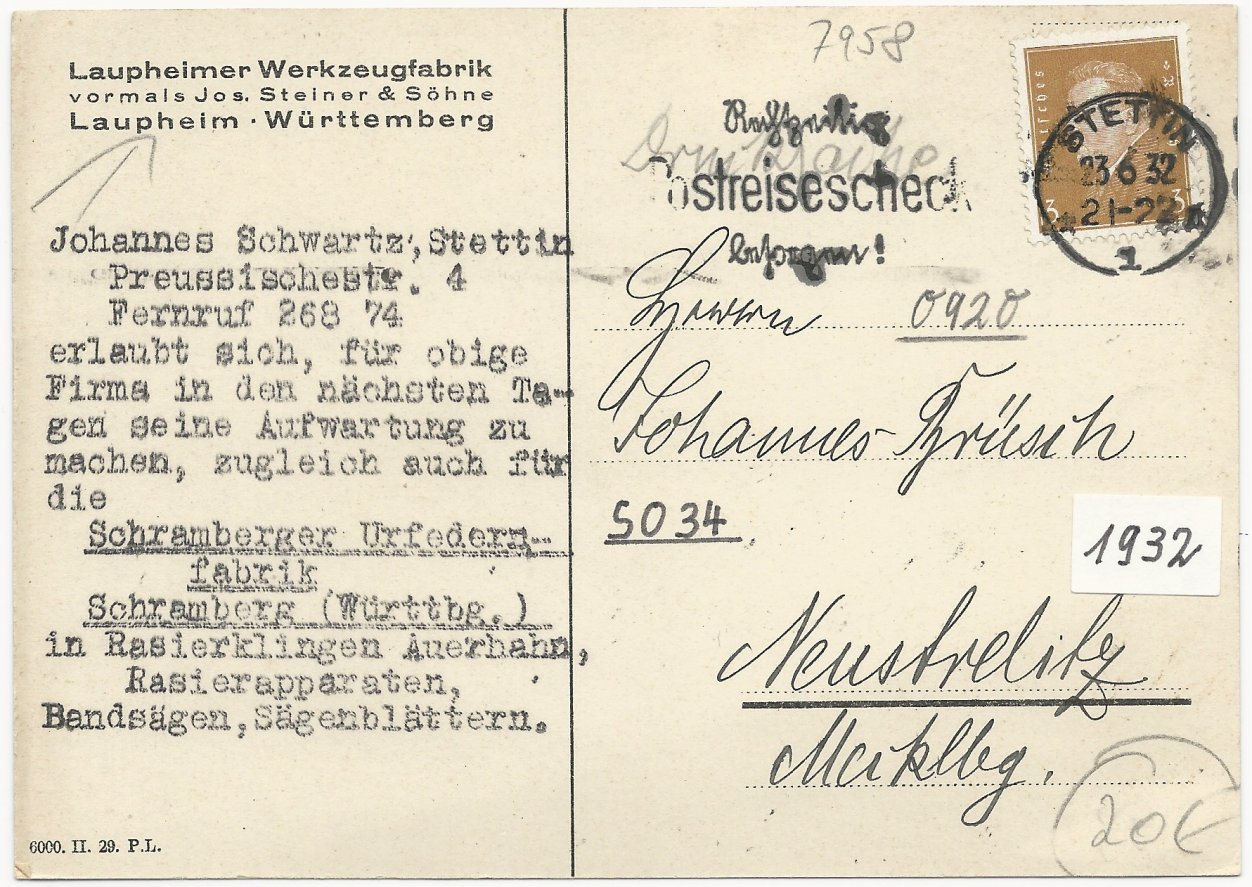 Laupheimer Werkzeugfabrik
vormals Jos. Steiner & Söhne
Laupheim · Württemberg
Johannes Schwartz, Stettin
Preussischestr. 4
Fernruf 268 74
erlaubt sich, für obige
Firma in den nächsten Ta-
gen seine Aufwartung zu
machen, zugleich auch für
die
Schramberger Urfedern-
fabrik
Schramberg (Württbg.)
in Rasierklingen Auerhahn,
Rasierapparaten,
Bandsägen, Sägenblättern.
6000. II. 29. P.L.
7958
Rechtzeitig
Postreisescheck
besorgen!
STETTIN
23 6 32
21-22
1
3
3
Herrn
0920
Johannes Brüsch
SO 34
1932
Neustrelitz
Meklbg.
20€